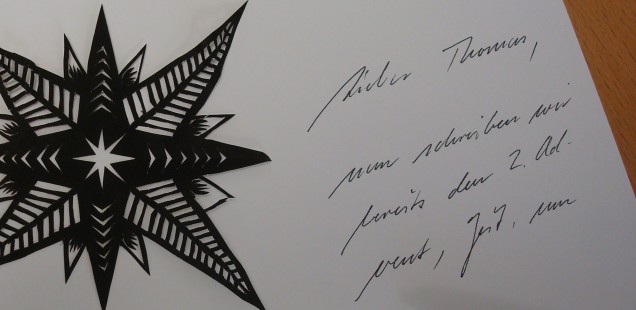 Lieber Thomas,
nun schreiben wir
bereits den 2. Ad-
vent, Zeit, um